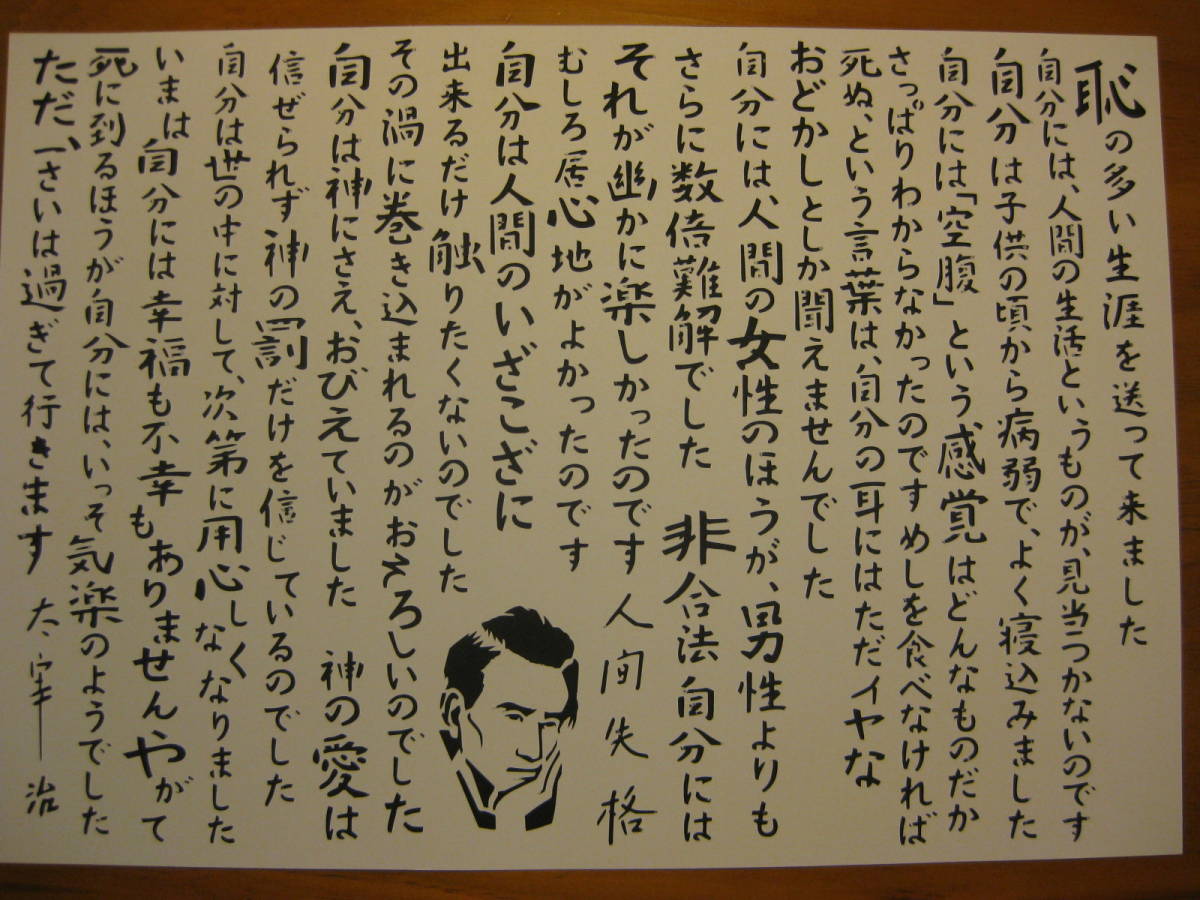 恥の多い生涯を送って来ました
自分には、人間の生活というものが、見当つかないのです
自分は子供の頃から病弱で、よく寝込みました
自分には「空腹」という、感覚はどんなものだか
さっぱりわからなかったのですめしを食べなければ
死ぬ、という言葉は、自分の耳にはただイヤな
おどかしとしか聞えませんでした
自分には、人間の女性のほうが、男性よりも
さらに数倍難解でした 非合法 自分には
それが幽かに楽しかったのです 人間失格
むしろ居心地がよかったのです
自分は人間のいざこざに
出来るだけ触りたくないのでした
その渦に巻き込まれるのがおそろしいのでした
自分は神にさえ、おびえていました 神の愛は
信ぜられず神の罰だけを信じているのでした
自分は世の中に対して、次第に用心しなくなりました
いまは自分には幸福も不幸もありませんやがて
死に到るほうが自分には、いっそ気楽のようでした
ただ、一さいは過ぎて行きます 太宰治